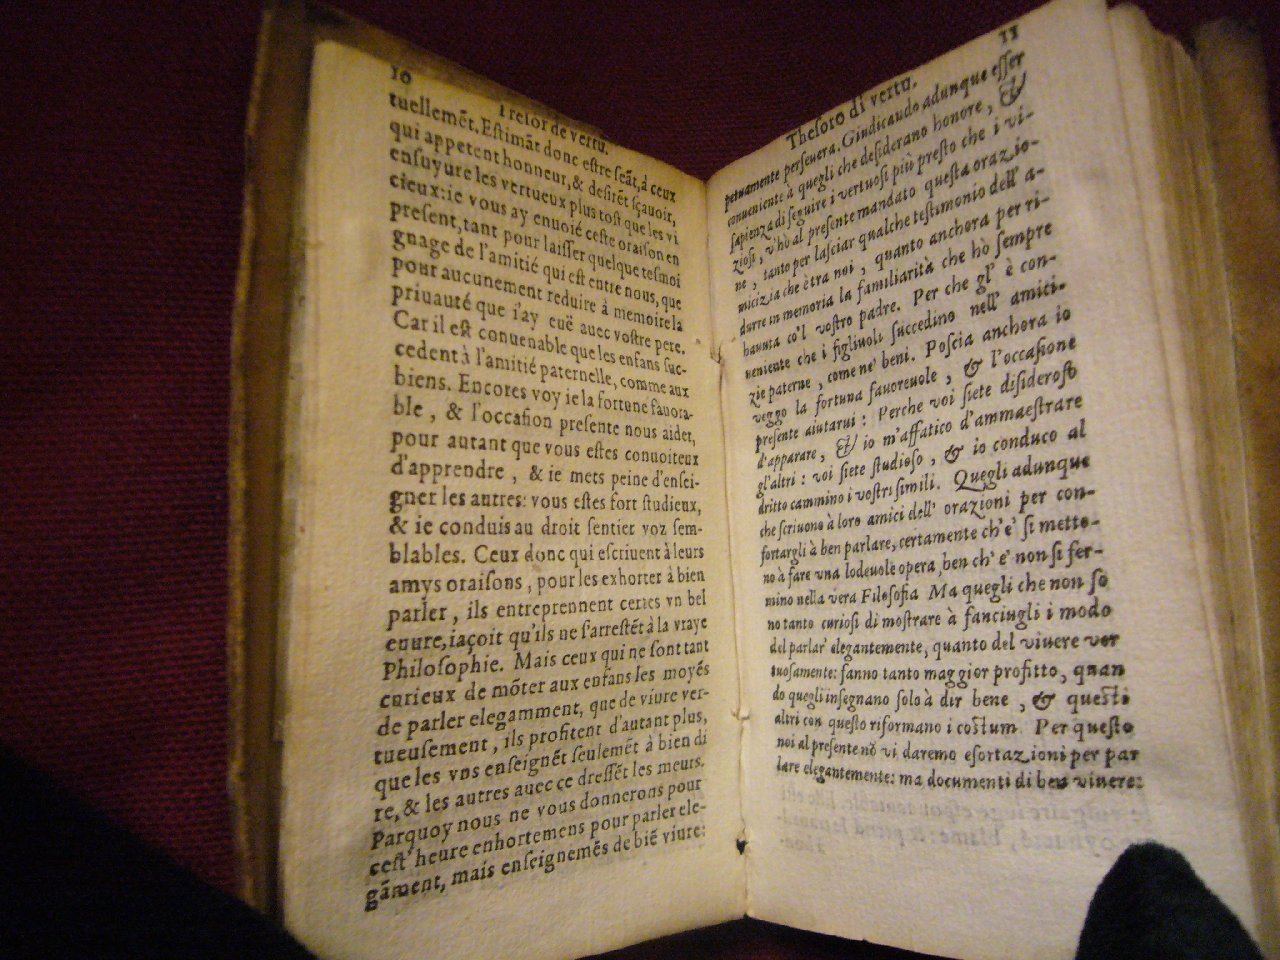 10
Tresor de vertu.
tuellemēt. Estimāt donc estre seāt, à ceux
qui appetent honneur, & desirēt sçauoir,
ensuyure les vertueux plus tost que les vi
cieux: ie vous ay enuoié ceste oraison en
present, tant pour laisser quelque tesmoi
gnage de l'amitié qui est entre nous, que
pour aucunement reduire à memoire la
priuauté que i'ay euë auec vostre pere.
Car il est conuenable que les enfans suc-
cedent à l'amitié paternelle, comme aux
biens. Encores voy ie la fortune fauora-
ble, & l'occasion presente nous aider,
pour autant que vous estes conuoiteux
d'apprendre, & ie mets peine d'ensei-
gner les autres: vous estes fort studieux,
& ie conduis au droit sentier voz sem-
blables. Ceux donc qui escriuent à leurs
amys oraisons, pour les exhorter à bien
parler, ils entreprennent certes vn bel
euure, iaçoit qu'ils ne s'arrestēt à la vraye
Philosophie. Mais ceux qui ne sont tant
curieux de mōter aux enfans les moyēs
de parler elegamment, que de viure ver-
tueusement, ils profitent d'autant plus,
que les vns enseignēt seulemēt à bien di
re, & les autres auec ce dressēt les meurs.
Parquoy nous ne vous donnerons pour
cest' heure enhortemens pour parler ele-
gāment, mais enseignemēs de biē viure:
11
Thesoro di vertu.
petuamente perseuera. Giudicando adunque esser
conueniente à quegli che desiderano honore, &
sapienza di seguire i vertuosi più presto che i vi-
ziosi, v'hò al presente mandato questa orazio-
ne, tanto per lasciar qualche testimonio dell' a-
micizia che è tra noi, quanto anchora per ri-
durre in memoria la familiarità che hò sempre
hauuta co'l vostro padre. Per che gl' è con-
ueniente che i figliuoli succedino nell' amici-
zie paterne, come ne' beni. Poscia anchora io
veggo la fortuna fauoreuole, & l'occasione
presente aiutarui: Perche voi siete disideroso
d'apparare, & io m'affatico d'ammaestrare
gl'altri: voi siete studioso, & io conduco al
dritto cammino i vostri simili. Quegli adunque
che scriuono à loro amici dell' orazioni per con-
fortargli à ben parlare, certamente ch'e' si metto-
no à fare vna lodeuole opera, ben ch' e' non si fer-
mino nella vera Filosofia Ma quegli che non so
no tanto curiosi di mostrare à fanciugli i modo
del parlar' elegantemente, quanto del viuere ver
tuosamente: fanno tanto maggior profitto, quan
do quegli insegnano solo à dir bene, & questi
altri con questo riformano i costum. Per questo
noi al presente nō vi daremo esortazioni per par
lare elegantemente: ma documenti di ben viuere: